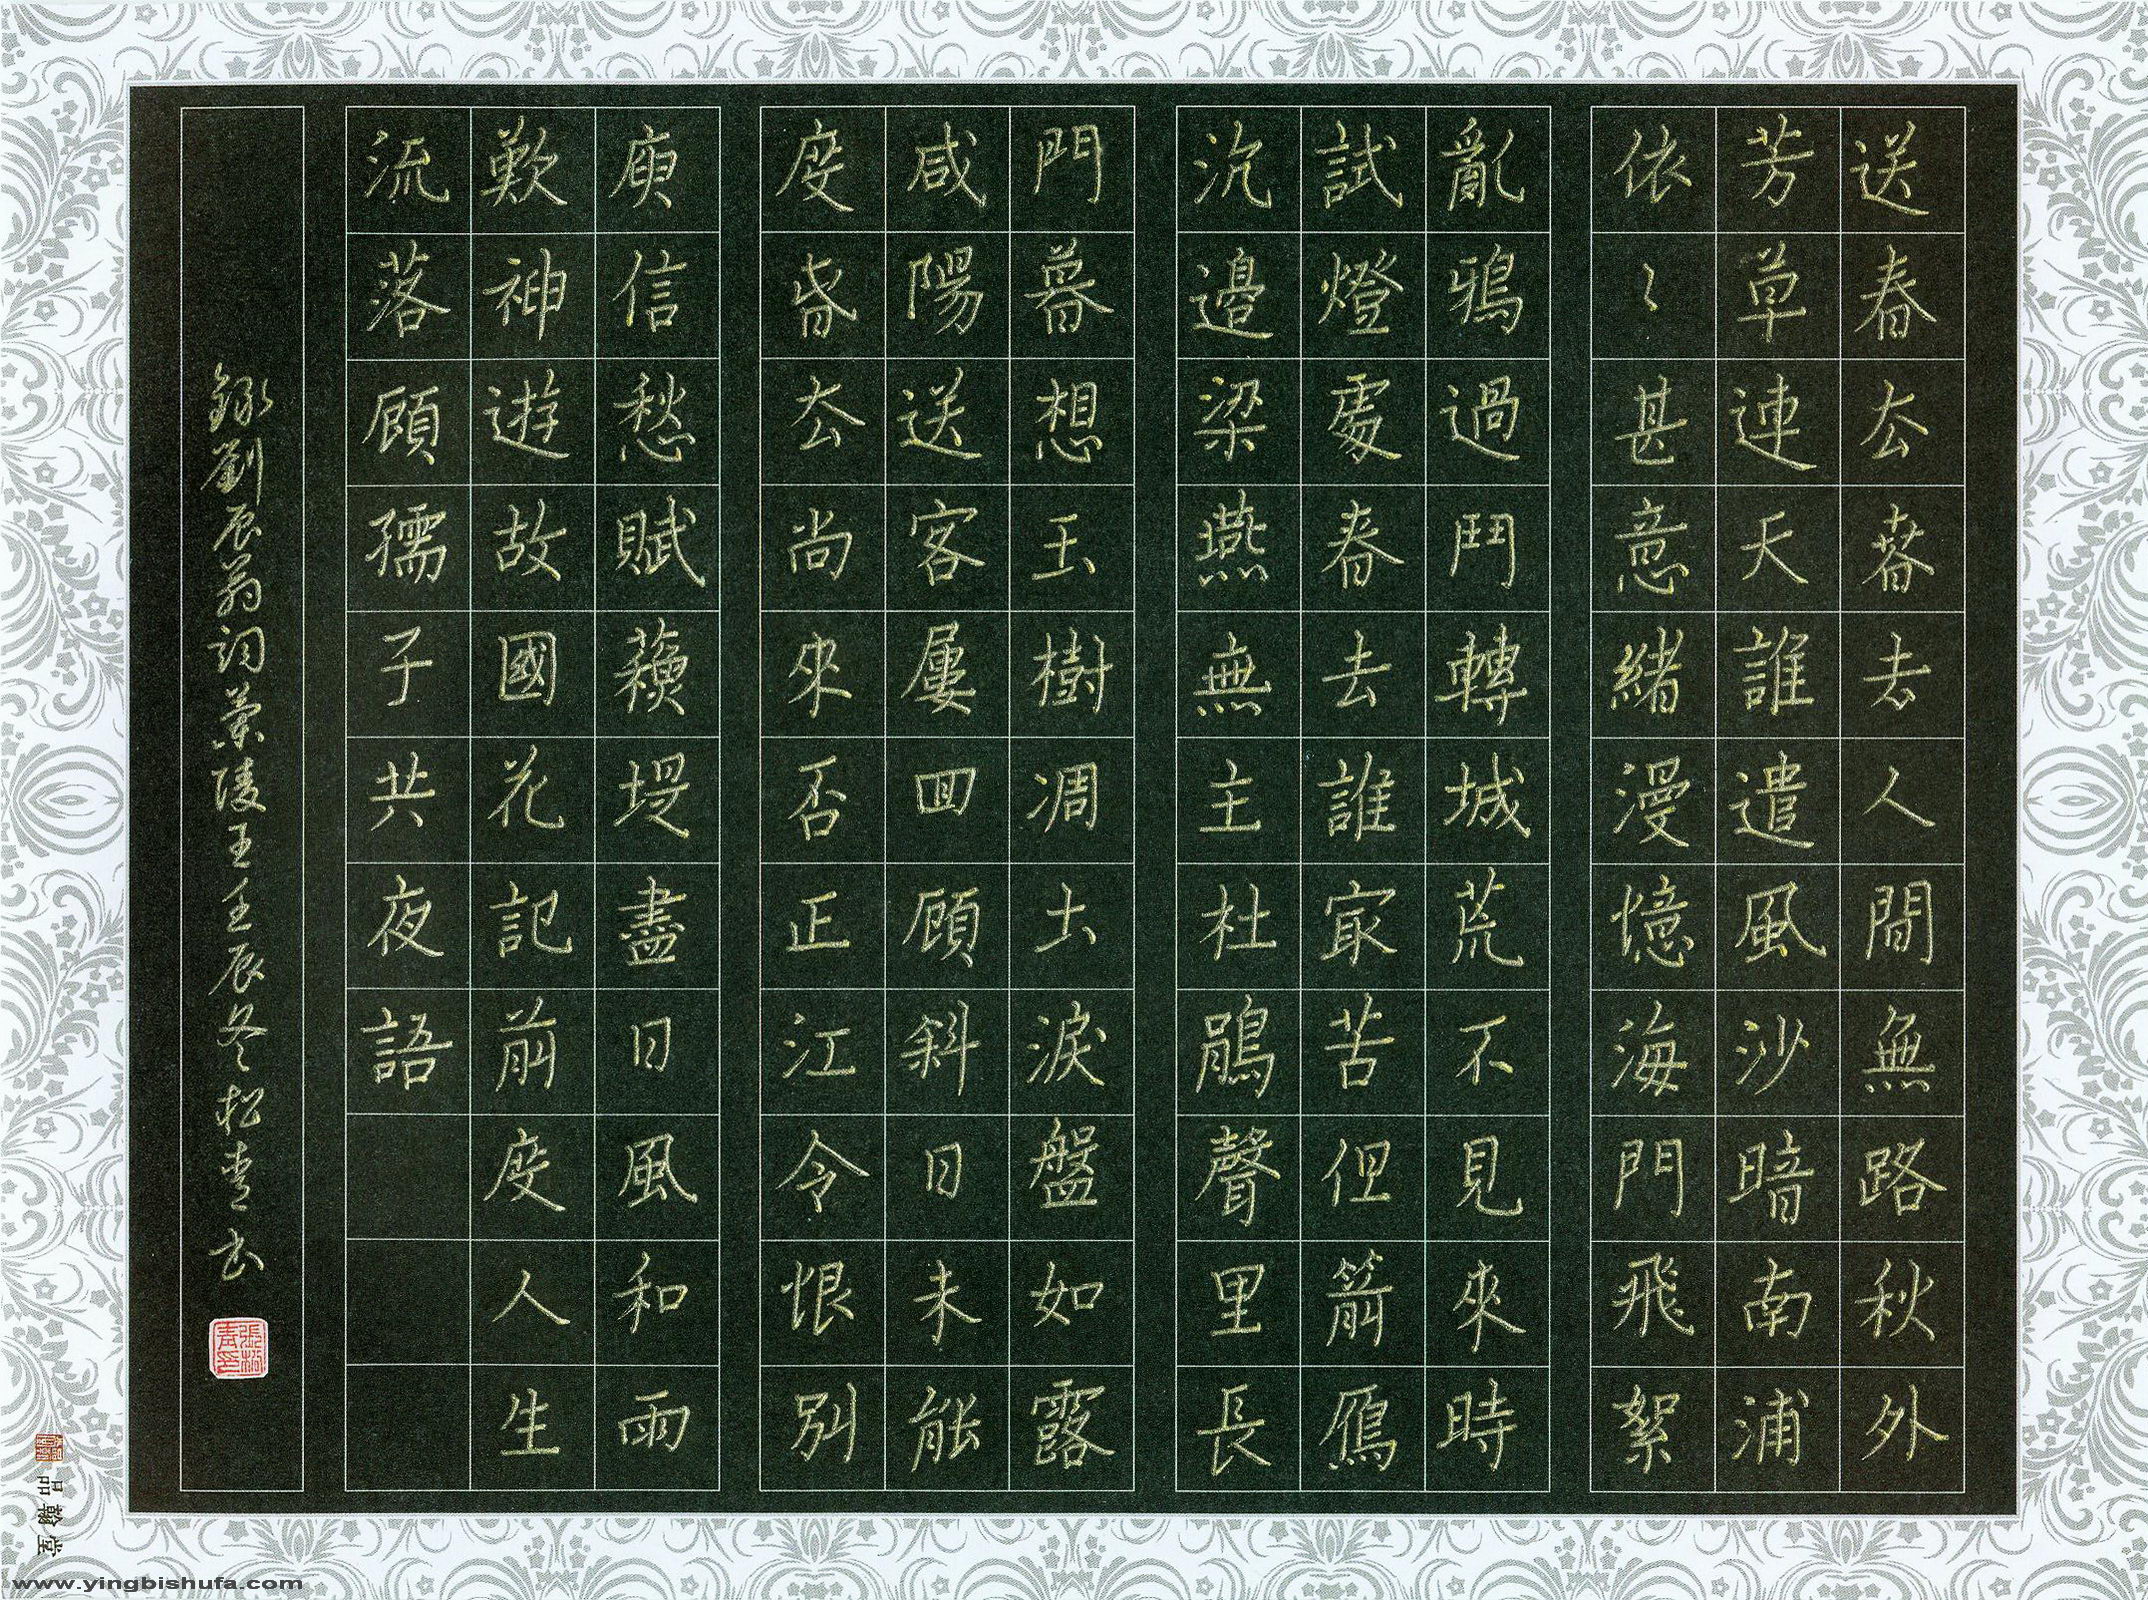 送春厺春去人間無路秋外
芳草連天誰遣風沙暗南浦
依〻甚意緒漫憶海門飛絮
亂鴉過鬥轉城荒不見來時
試燈處春去誰家苦但箭鴈
沉邊梁燕無主杜鵑聲里長
門暮想玉樹凋土淚盤如露
咸陽送客屢回顧斜日未能
度春厺尚來否正江令恨別
庾信愁賦蘇堤盡日風和雨
歎神遊故國花記前度人生
流落顧孺子共夜語
錄劉辰翁詞蘭陵王壬辰冬松青書
張松青印
品翰堂
www.yingbishufa.com